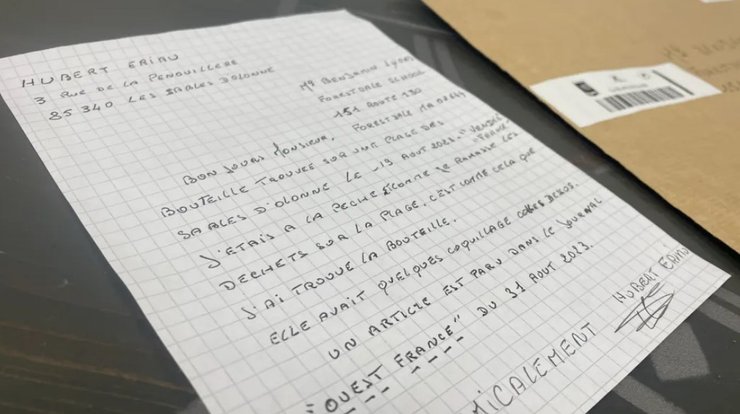 HUBERT ERIAU
3 RUE DE LA PENOUILLERE
85340 LES SABLES D'OLONNE
Mr BENJAMIN LYONS
FORESTDALE SCHOOL
151 ROUTE 130
FORESTDALE MA 02644
BON JOURS MONSIEUR,
BOUTEILLE TROUVEE SUR UNE PLAGE DES
SABLES D'OLONNE LE -19 AOUT 2023-"VENDEE
"FRANCE"
J'ETAIS A LA PECHE ET COMME JE RAMASSE LES
DECHETS SUR LA PLAGE. C'EST COMME CELA QUE
J'AI TROUVE LA BOUTEILLE.
ELLE AVAIT QUELQUES COQUILLAGE COLLES DESSUS.
UN ARTICLE EST PARU DANS LE JOURNAL
"OUEST FRANCE" DU 31 AOUT 2023.
ICALEMENT
HUBERT ERIAU